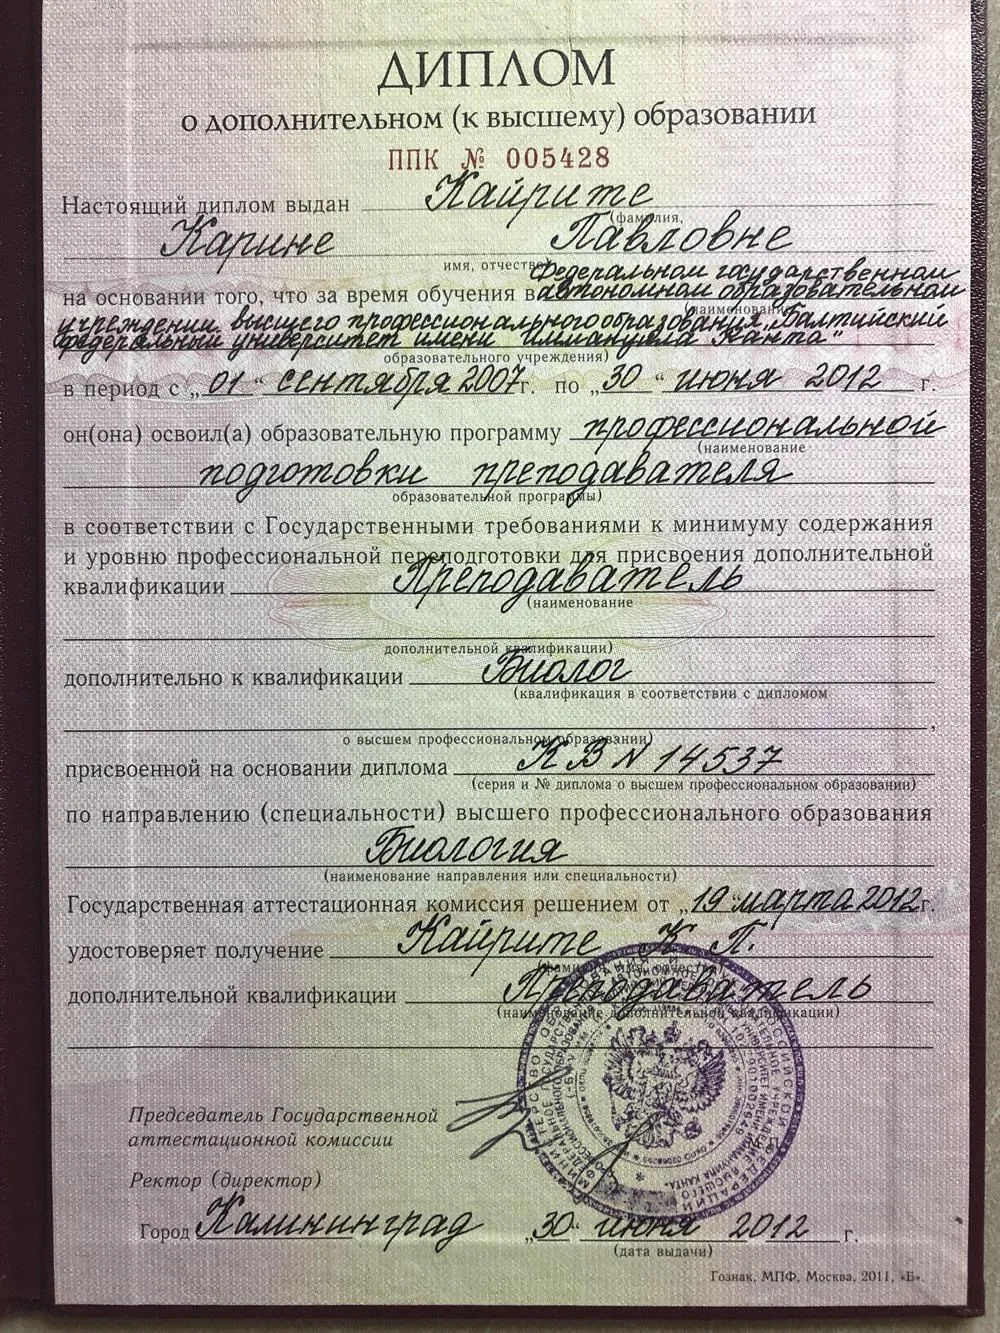 ДИПЛОМ
о дополнительном (к высшему) образовании
ППК № 005428
Настоящий диплом выдан Кайрите
(фамилия,
Карине Павловне
имя, отчество)
Федеральном государственном
на основании того, что за время обучения в автономном образовательном
(наименование
учреждении высшего профессионального образования „Балтийский
федеральный университет имени Иммануила Канта"
образовательного учреждения)
в период с „01" сентября 2007 г. по „30" июня 2012 г.
он(она) освоил(а) образовательную программу профессиональной
(наименование
подготовки преподавателя
образовательной программы)
в соответствии с Государственными требованиями к минимуму содержания
и уровню профессиональной переподготовки для присвоения дополнительной
квалификации Преподаватель
(наименование
дополнительной квалификации)
дополнительно к квалификации Биолог
(квалификация в соответствии с дипломом
о высшем профессиональном образовании)
,
присвоенной на основании диплома КВ N 14537
(серия и № диплома о высшем профессиональном образовании)
по направлению (специальности) высшего профессионального образования
Биология
(наименование направления или специальности)
Государственная аттестационная комиссия решением от „19" марта 2012 г.
удостоверяет получение Кайрите К. П.
(фамилия, имя, отчество)
дополнительной квалификации Преподаватель
(наименование дополнительной квалификации)
Председатель Государственной
аттестационной комиссии
М.П.
Ректор (директор)
Город Калининград „30" июня 2012 г.
(дата выдачи)
Гознак, МПФ, Москва, 2011, «Б».